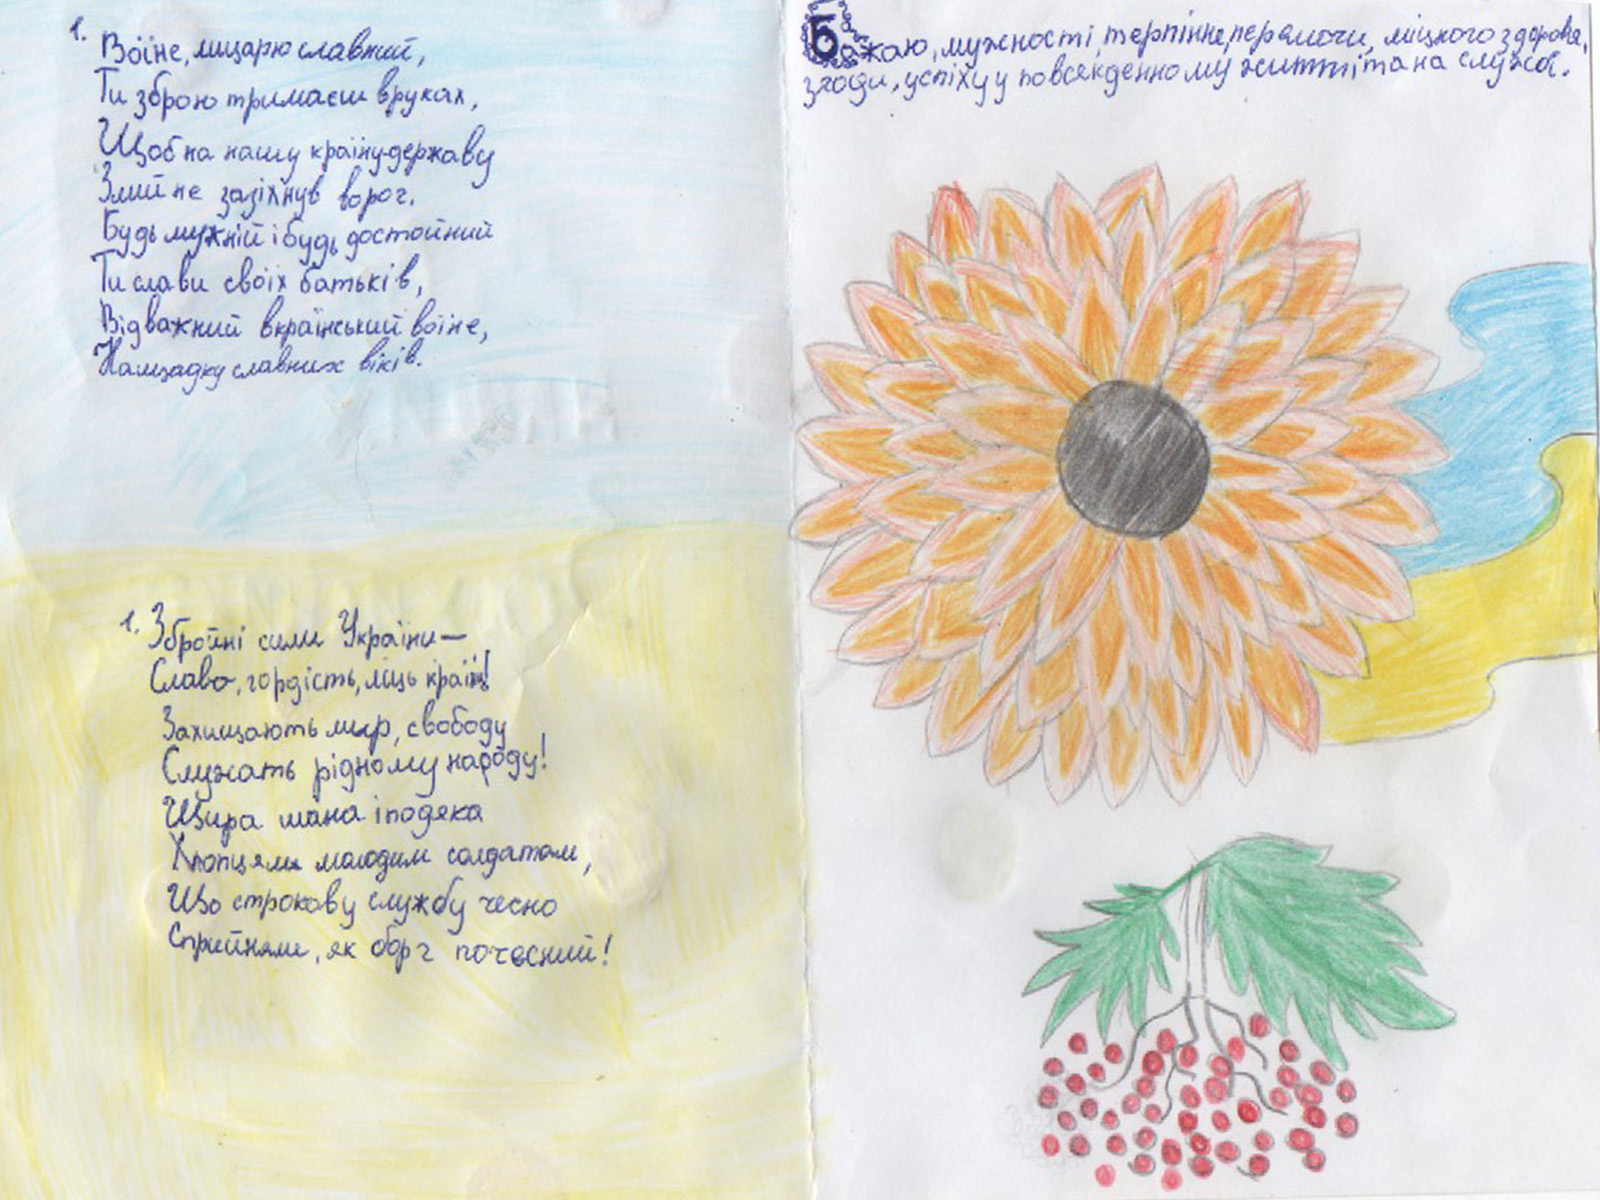 1. Воїне, лицарю славний,
Ти зброю тримаєш в руках,
Щоб на нашу країну-державу
Злий не зазіхнув ворог.
Будь мужній і будь достойний
Ти слави своїх батьків,
Відважний вкраїнський воїне,
Нащадку славних віків.
1. Збройні сили України—
Слава, гордість, міць країни!
Захищають мир, свободу
Служать рідному народу!
Щира шана і подяка
Хлопцям молодим солдатам,
Що строкову службу чесно
Сприйняли, як борг почесний!
Бажаю, мужності, терпіння, перемоги, міцного здоровя,
згоди, успіху у повсякденному житті та на службі.